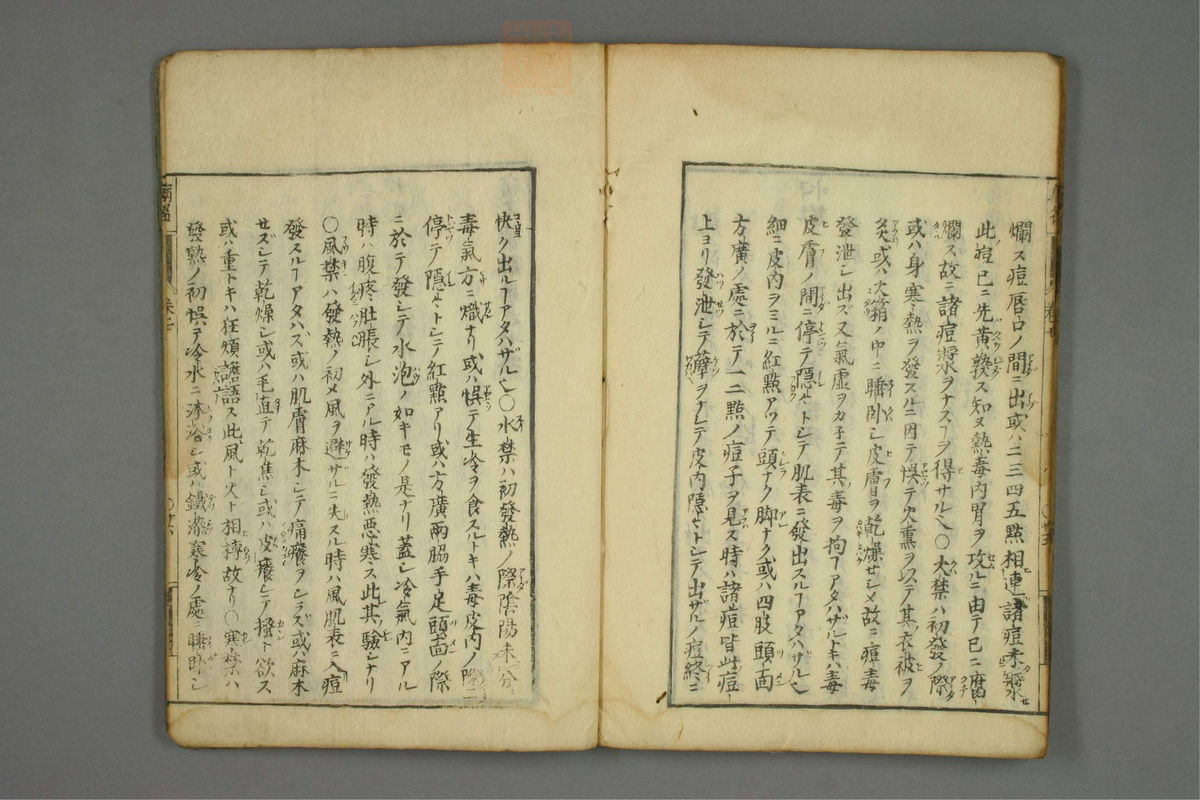 爛ス痘唇口ノ間ニ出或ハ二三四五點相連諸痘未漿
此痘已ニ先黃熟ス知ヌ熱毒内胃ヲ攻ルニ由テ已ニ腐
爛ス故ニ諸痘漿ヲナスヿヲ得サル〇火禁ハ初發ノ際
或ハ身寒熱ヲ發スルニ因テ誤テ火熏ヲ以テ其衣被ヲ
炙或ハ火箱ノ中ニ睡臥シ皮膚ヲ乾燥セシメ故ニ痘毒
發泄シ出ズ又氣虛ヲカ子テ其毒ヲ拘ヿアタハザルトキハ毒
皮膚ノ間ニ停テ隱々トシテ肌表ニ發出スルヿアタハザル
細ニ皮内ヲミルニ紅點アツテ頭ナク脚ナク或ハ四肢頭面
方廣ノ處ニ於テ一二點ノ痘子ヲ見ス時ハ諸痘皆此痘
上ヨリ發泄シテヲナシテ皮内隱々トシテ出ザルノ痘終ニ
快ク出ルヿアタハザル〇水禁ハ初發熱ノ際陰陽未分
毒氣方ニ熾ナリ或ハ誤テ生冷ヲ食スルトキハ毒皮内ノ際ニ
停テ隱々トシテ紅點アリ或ハ方廣兩脇手足頭面ノ際
ニ於テ發シテ水泡ノ如キモノ是ナリ蓋シ冷氣内ニアル
時ハ腹疼肚脹シ外ニアル時ハ發熱惡寒ス此其驗ナリ
〇風禁ハ發熱ノ初メ風ヲ避ザルニ失スル時ハ風肌表ニ入痘
發スルヿアタハズ或ハ肌膚麻木シテ痛癢ヲシラズ或ハ麻木
セズシテ乾燥シ或ハ毛直テ乾焦シ或ハ皮癢シテ搔ト欲ス
或ハ重トキハ狂煩譫語ス此風ト火ト相摶故ナリ〇寒禁ハ
發熱ノ初誤テ冷水ニ沐浴シ或ハ鐵漆寒冷ノ處ニ睡臥シ